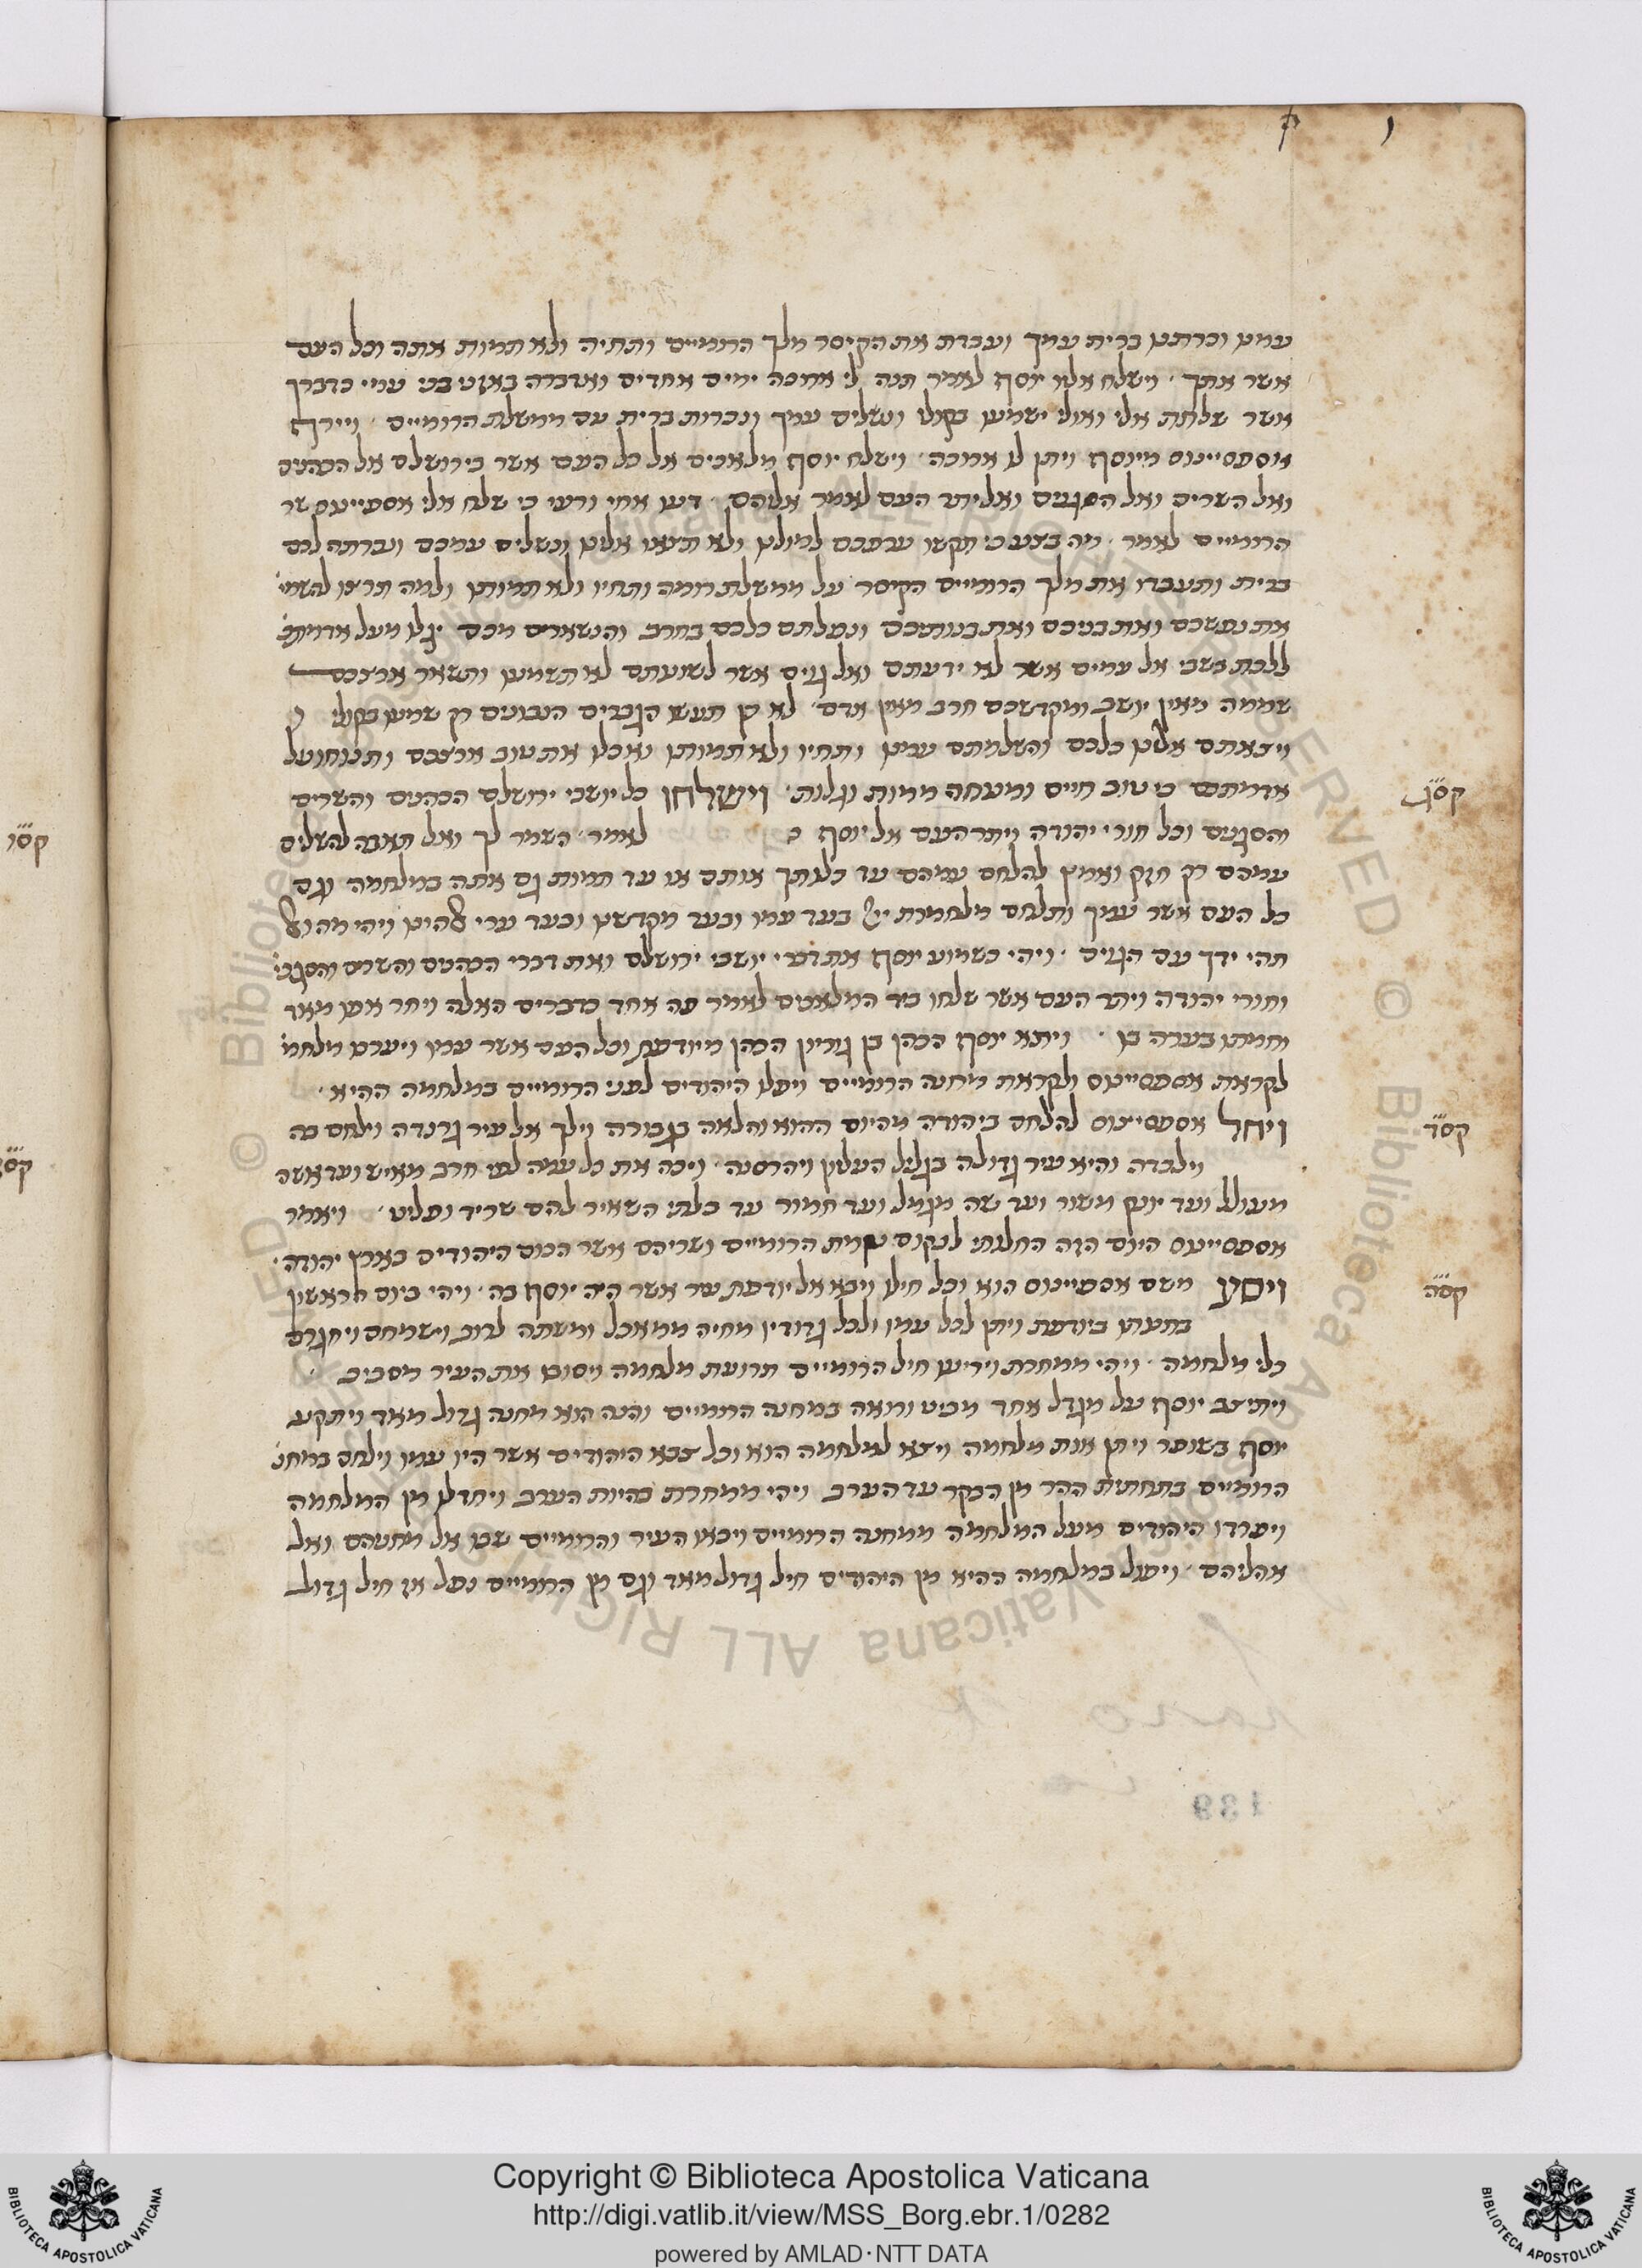 עמנו וכרתנו ברית עמך ועבדת את הקיסר מלך הרומיים ותחיה ולא תמות אתה וכל העם
אשר אתך וישלח אליו יוסף לאמר תנה לי ארכה ימים אחדים ואדברה באזני בני עמי כדברך
אשר שלחת אלי ואולי ישמעו בקולי ונשלים עמך ונכרות ברית עם ממשלת הרומיים וירף
אוספסיינוס מיוסף ויתן לו ארוכה וישלח יוסף מלאכים אל כל העם אשר בירושלם אל הכהנים
ואל השרים ואל הסגנים ואל יתר העם לאמר אליהם דעו אחי ורעי כי שלח אלי אספסיינוס שר
הרומיים לאמר מה בצע כי תקשו ערפכם למולינו ולא תצאו אלינו ונשלים עמכם ונכרתה לכם
ברית ותעבדו את מלך הרומיים הקיסר על ממשלת רומה ותחיו ולא תמותו ולמה תרצו להשמי
את נפשכם ואת בניכם ואת בנותיכם ונפלתם כלכם בחרב והנשארים מכם יגלו מעל אדמתם
ללכת בשבי אל עמים אשר לא ידעתם ואל גוים אשר לשונתם לא תשמעו ותשאר ארצכם
שממה מאין יושב ומקדשכם חרב מאין אדם לא כן תעשו הגברים הנבונים רק שמעו בקולי
ויצאתם אלינו כלכם והשלמתם עמנו ותחיו ולא תמותו ואכלו את טוב ארצכם ותנוחו על
אדמתכם כי טוב חיים ומנוחה ממות וגלות וישלחו כל יושבי ירושלם הכהנים והשרים
קסג
והסגנים וכל חורי יהודה ויתר העם אל יוסף לאמר השמר לך ואל תאבה להשלים
עמהם רק חזק ואמץ להלחם עמהם עד כלותך אותם או עד תמות גם אתה במלחמה וגם
כל העם אשר עמך ותלחם מלחמות בעד עמו ובעד מקדשו ובעד ערי
תהי ידך עם הגוים ויהי כשמוע יוסף את דברי יושבי ירושלם ואת דברי הכהנים והשרים והסגני
וחורי יהודה ויתר העם אשר שלחו ביד המלאכים לאמר פה אחד כדברים האלה ויחר אפו מאד
וחמתו בערה בו ויצא יוסף הכהן בן גוריון הכהן מיודפת וכל העם אשר עמו ויערכו מלחמ
לקראת אספסיינוס ולקראת מחנה הרומיים ויפלו היהודים לפני הרומיים במלחמה ההיא
ויחל אספסיינוס להלחם ביהודה מהיום ההוא והלאה בגבורה וילך אל עיר גרנדה וילחם בה
קסד
וילכדה והיא עיר גדולה בגליל העליון ויהרסנה ויכה את כל עמה לפי חרב מאיש ועד אשה
מעולל ועד יונק משור ועד שה מגמל ועד חמור עד בלתי השאיר להם שריד ופליט ויאמר
אספסיינוס היום הזה החלותי לנקום נקמת הרומיים ושריהם אשר הכום היהודים בארץ יהודה
ויסע משם אספסיינוס הוא וכל חילו ויבא אל יודפת עיר אשר היה יוסף בה ויהי ביום הראשון
קסה
בחנותו ביודפת ויתן לכל עמו ולכל גדודיו מחיה ממאכל ומשתה לרוב וישמחם ויחגרם
כלי מלחמה ויהי ממחרת ויריעו חיל הרומיים תרועת מלחמה ויסובו את העיר מסביב
ויתיצב יוסף על מגדל אחד מביט ורואה במחנה הרומיים והנה הוא מחנה גדול מאד ויתקע
יוסף בשופר ויתן אות מלחמה ויצא למלחמה הוא וכל צבא היהודים אשר היו עמו וילחם במחנ
הרומיים בתחתית ההר מן הבקר עד הערב ויהי ממחרת בהיות הערב ויחדלו מן המלחמה
ויפרדו היהודים מעל המלחמה ממחנה הרומיים ויבאו העיר והרומיים שבו אל מחניהם ואל
אהליהם ויפול במלחמה ההיא מן היהודים חיל גדול מאד וגם מן הרומיים נפל אז חיל גדול
קסו
Copyright © Biblioteca Apostolica Vaticana
http://digi.vatlib.it/view/MSS_Borg.ebr.1/0282
powered by AMLAD·NTT DATA
BIBLIOTECA APOSTOLICA VATICANA
BIBLIOTECA APOSTOLICA VATICANA